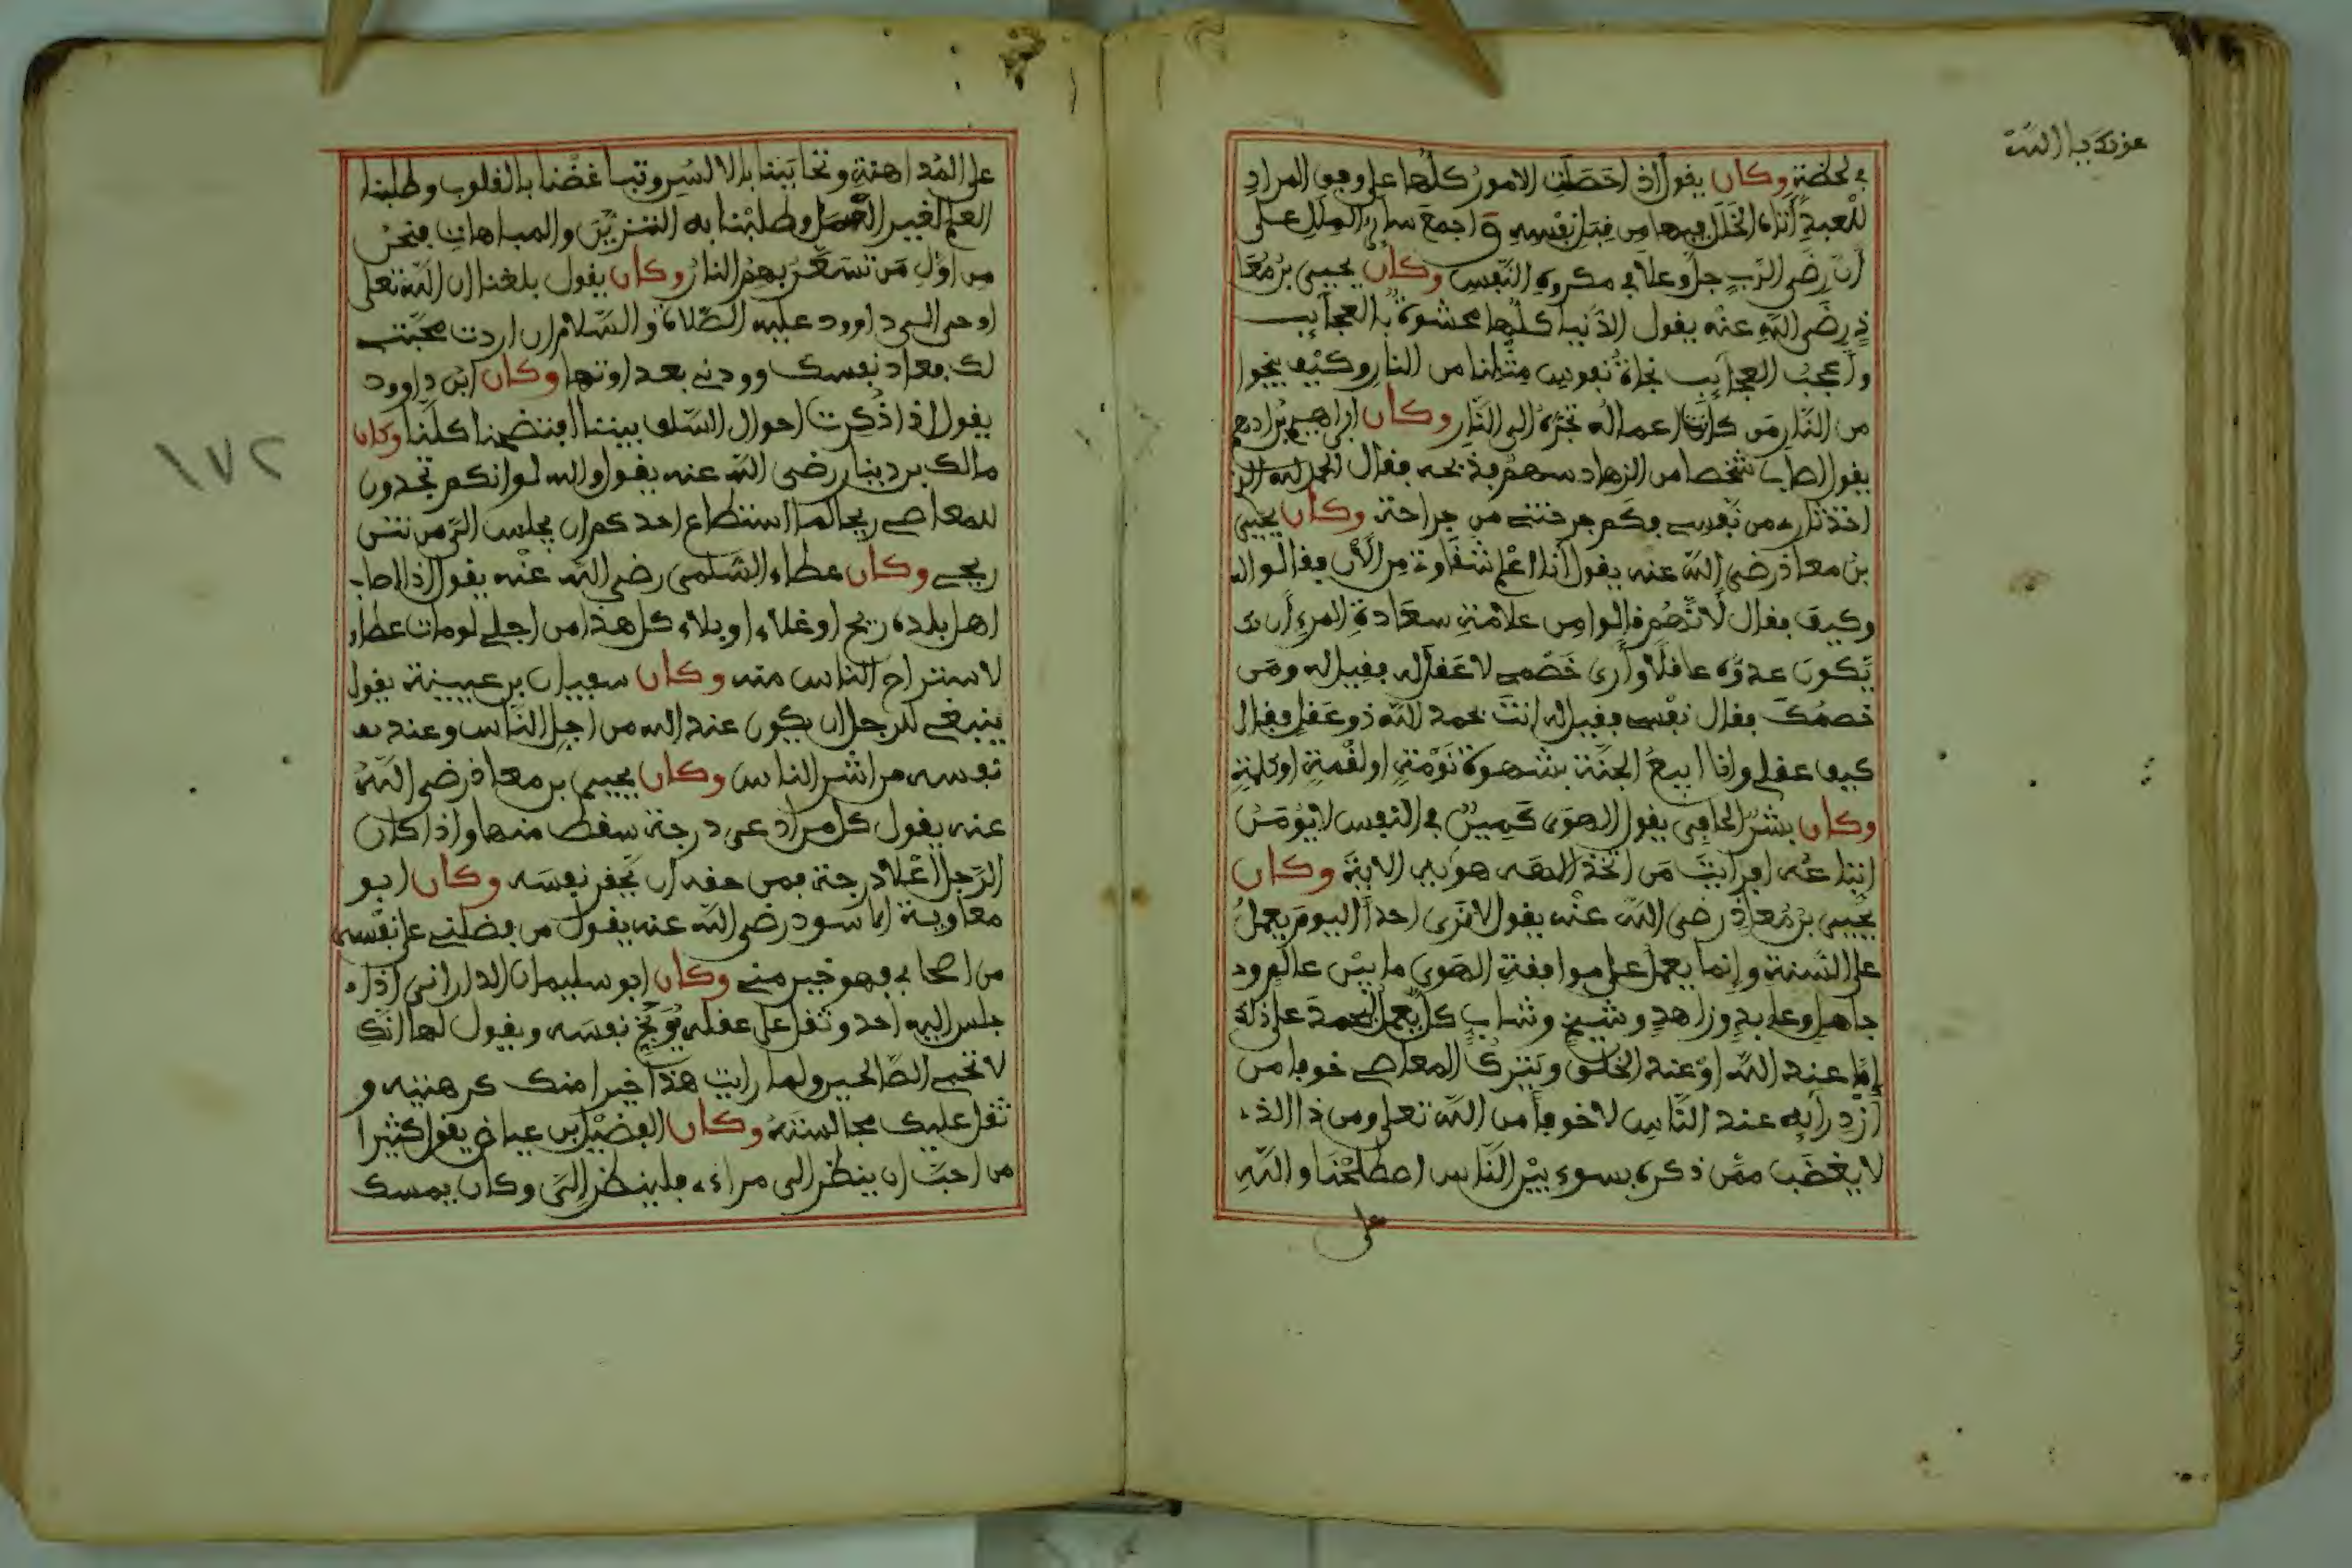 في لحظة وكان يقول إذا حصلت الأمور كلها على وجه المراد
للعبد أتاه الخلل فيها من قبل نفسه وأجمع سائر الملل على
أن رضى الرب جل وعلا في مكروه النفس وكان يحيى بن معا
ذ رضي الله عنه يقول الدنيا كلها محشوة بالعجائب
وأعجب العجائب نجاة نفوس مثلنا من النار وكيف ينجوا
من النار من كانت أعماله تجره إلى النار وكان إبراهيم بن أدهم
يقول أصاب شخصا من الزهاد سهم فذبحه فقال الحمد لله الذ
أخذ ثاره من نفسي فكم جرحتني من جراحة وكان يحيى
بن معاذ رضي الله عنه يقول أنا أعلم شقاوة من الآن فقالوا له
وكيف فقال لأنهم قالوا من علامة سعادة المرء أن
يكون عدوه عاقلا وأرى خصمي لا عقل له فقيل له ومن
خصمك فقال نفسي فقيل له أنت بحمد الله ذو عقل فقال
كيف عقلي وأنا أبيع الجنة بشهوة نومة أو لقمة أو كلمة
وكان بشر الحافي يقول الهوى كمين في النفس لا يؤمن
اتباعه أفرأيت من اتخذ إلهه هويه الآية وكان
يحيى بن معاذ رضي الله عنه يقول لا نرى أحدا اليوم يعمل
على السنة وإنما يعمل على موافقة الهوى ما بين عالم ود
جاهل وعابد وزاهد وشيخ وشاب كل يعمل لحمد على ذلك
إما عند الله أو عند الخلق ويترك المعاصي خوفا من
ازدرائه عند الناس لا خوفا من الله تعلى ومن ذا الذ
لا يغضب ممن ذكره بسوء بين الناس اصطلحنا والله
على
على المداهنة وتحاببنا بالالسن وتباغضنا بالقلوب وطلبنا
العلم لغير العمل وطلبنا به التزين والمباهات فنحن
من أول من تسعر بهم النار وكان يقول بلغنا أن الله تعلى
أوحى إلى داوود عليه الصلاة والسلام إن أردت محبتي
لك فعاد نفسك وودني بعداوتها وكان ابن داوود
يقول إذا ذكرت أحوال السلف بيننا افتضحنا كلنا وكان
مالك بن دينار رضي الله عنه يقول والله لو انكم تجدون
للمعاصي ريحا لما استطاع أحدكم أن يجلس إلي من نتن
ريحي وكان عطاء السلمي رضي الله عنه يقول إذا أصاب
أهل بلده ريح أو غلاء أو بلاء كل هذا من أجلي لو مات عطاء
لاستراح الناس منه وكان سفيان بن عيينة يقول
ينبغي للرجل أن يكون عند الله من أجل الناس وعند
نفسه من أشر الناس وكان يحيى بن معاذ رضي الله
عنه يقول كل من ادعى درجة سقط منها وإذا كان
الرجل أعلا درجة فمن حقه أن يحقر نفسه وكان أبو
معاوية الاسود رضي الله عنه يقول من فضلني على نفسه
من أصحابي فهو خير مني وكان أبو سليمان الداراني إذا
جلس إليه أحد وثقل على عقله يوبخ نفسه ويقول لها انك
لا تحبي الصالحين ولما رأيت هذا خيرا منك كرهتيه و
ثقل عليك مجالسته وكان الفضيل بن عياض يقول كثيرا
من أحب أن ينظر إلى مراء فلينظر إلي وكان يمسك
١٧٢